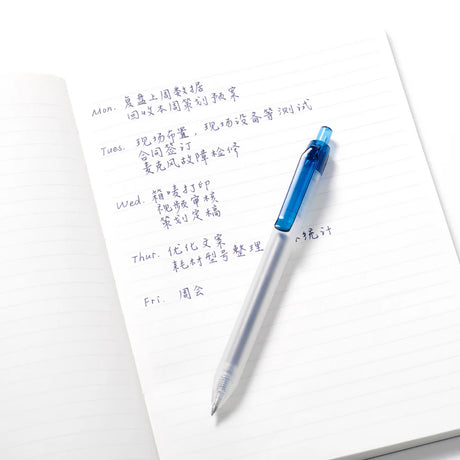 Mon. 复盘上周数据
回收本周策划预案
Tues. 现场布置，现场设备等测试
合同签订
麦克风故障检修
Wed. 箱唛打印
视频审核
策划定稿
Thur. 优化文案
耗材型号整理 统计
Fri. 周会